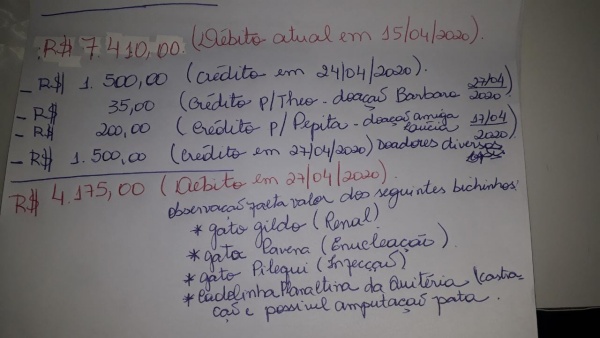 R$ 7.410,00. (Débito atual em 15/04/2020).
- R$ 1.500,00 (Crédito em 24/04/2020).
- R$ 35,00 (Crédito p/Theo - doação Barbara 27/04/2020)
- R$ 200,00 (Crédito p/ Pepita - doação amiga Lúcia 17/04/2020)
- R$ 1.500,00 (Crédito em 27/04/2020) Doadores diversos
R$ 4.175,00 (Débito em 27/04/2020).
Observação falta valor dos seguintes bichinhos:
* gato gildo (Renal)
* gata Ravena (Enucleação).
* gato Pilequi (Injecção)
* Cadelinha Planaltina da Quitéria (castra-
ção e possivel amputação pata.